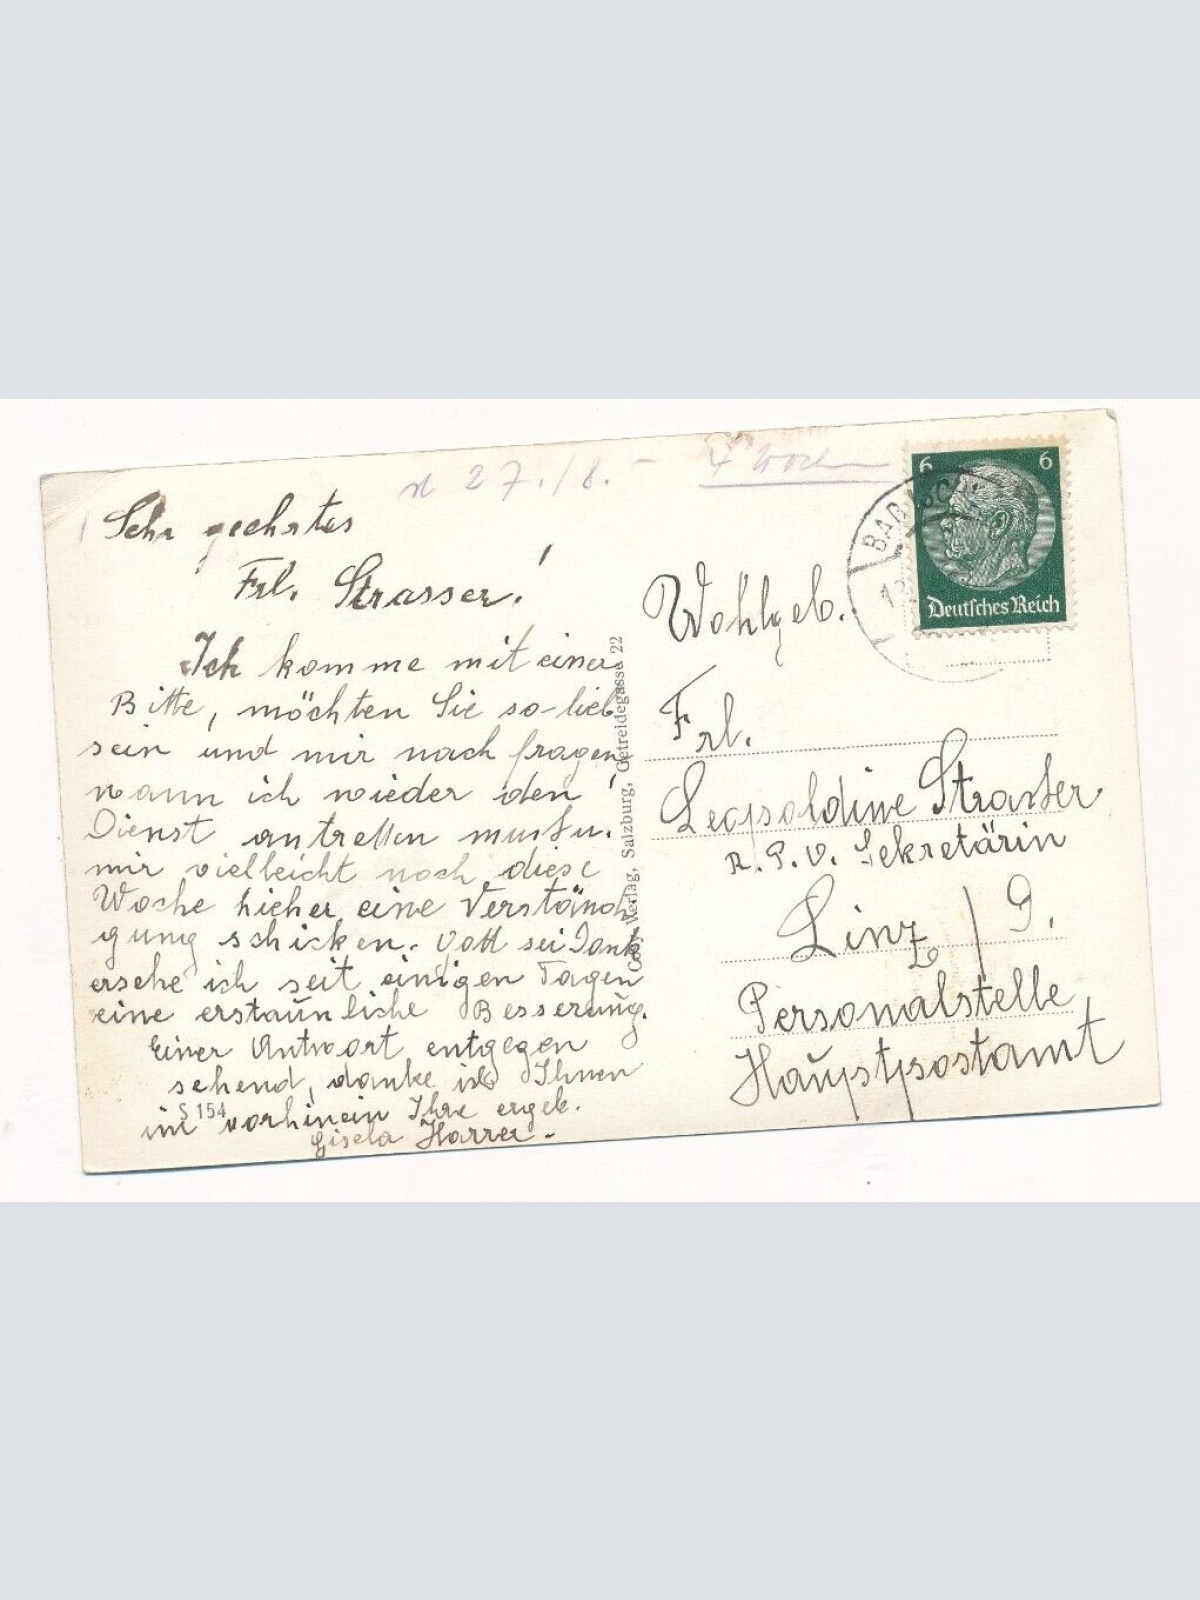 27./8. – 4 Woch
Sehr geehrtes
Frl. Strasser!
Ich komme mit einer
Bitte, möchten Sie so-lieb
sein und mir nach fragen,
wann ich wieder den
Dienst antreten muss u.
mir vielleicht noch diese
Woche hieher eine Verständi
gung schicken. Gott sei Dank
ersehe ich seit einigen Tagen
eine erstaunliche Besserung.
Einer Antwort entgegen
sehend, danke ich Ihnen
im vorhinein Ihre ergeb.
Gisela Harrer.-
S 154
Verlag, Salzburg, Getreidegasse 22
6 6
Deutsches Reich
BAD ISCHL
Wohlgeb.
Frl.
Leopoldine Strasser
R. P. O. Sekretärin
Linz / D.
Personalstelle
Hauptpostamt